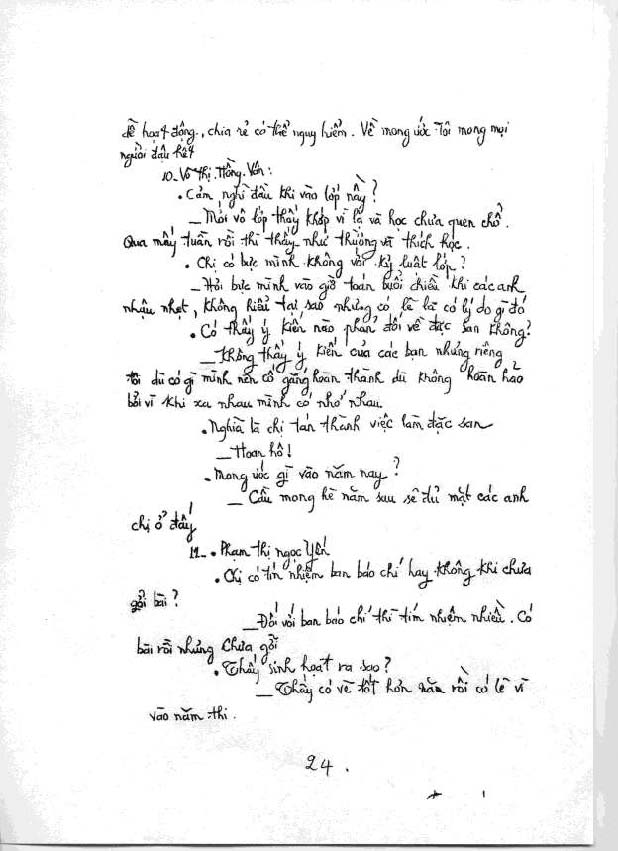 để hoạt động, chia rẽ có thể nguy hiểm. Về mong ước tôi mong mọi
người đậu hết
10_ Võ Thị Hồng Vân :
. Cảm nghĩ đầu khi vào lớp này ?
_ Mới vô lớp thấy khớp vì lạ và học chưa quen chỗ.
Qua mấy tuần rồi thì thấy như thường và thích học.
. Chị có bực mình không với kỷ luật lớp ?
_ Hơi bực mình vào giờ toán buổi chiều khi các anh
nhậu nhẹt, không hiểu tại sao nhưng có lẽ là có lý do gì đó
. Có thấy ý kiến nào phản đối về đặc san không?
_ Không thấy ý kiến của các bạn nhưng riêng
tôi dù có gì mình nên cố gắng hoàn thành dù không hoàn hảo
bởi vì khi xa nhau mình có nhớ nhau
. Nghĩa là chị tán thành việc làm đặc san
_ Hoan hô !
. Mong ước gì vào năm nay ?
_ Cầu mong hè năm sau sẽ đủ mặt các anh
chị ở đấy
11_ . Phạm thị ngọc Yến
. Chị có tín nhiệm ban báo chí hay không khi chưa
gởi bài ?
_ Đối với ban báo chí thì tín nhiệm nhiều. Có
bài rồi nhưng chưa gởi
. Thấy sinh hoạt ra sao ?
_ Thấy có vẻ tốt hơn năm rồi có lẽ vì
vào năm thi.
24.